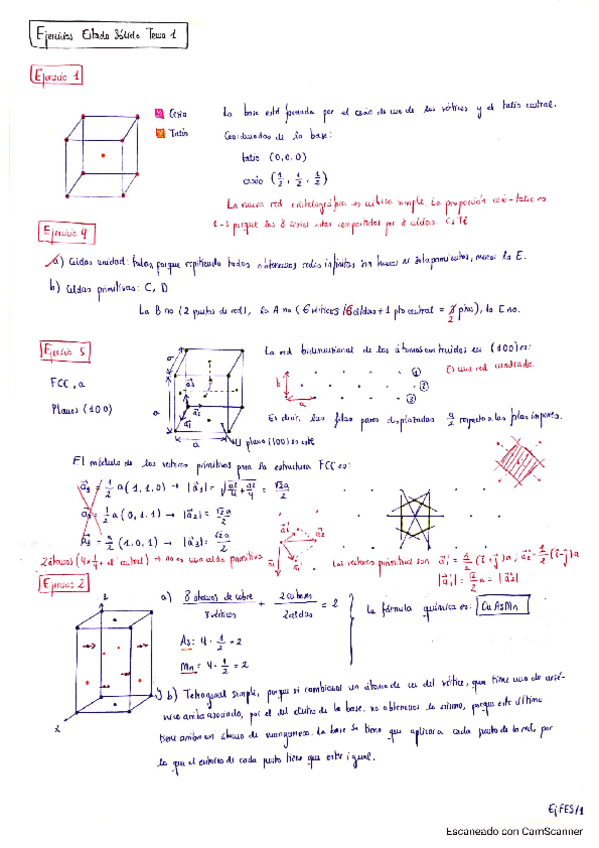 Ejercicios Estado Sólido Tema 1
Ejercicio 1
Cesio
Talio
La base está formada por el cesio de uno de los vértices y el talio central.
Coordenadas de la base:
talio (0,0,0)
cesio (1/2, 1/2, 1/2)
La nueva red cristalográfica es cúbica simple. La proporción cesio-talio es
1-1 porque los 8 cesios están compartidos por 8 celdas.
Ejercicio 4
a) Celdas unidad: todas, porque repitiendo todas obtenemos redes infinitas sin huecos ni solapamientos, menos la E.
b) Celdas primitivas: C, D
La B no (2 puntos de red), la A no (6 vértices/6 celdas + 1 pto central = 2 ptos), la E no.
Ejercicio 5
FCC, a
Planos (100)
a
a
a
El plano (100) es este
La red bidimensional de los átomos construidos en (100) es:
Es una red cuadrada.
b
a
①
②
③
Es decir, las filas pares desplazadas a/2 respecto a las filas impares.
El módulo de los vectores primitivos para la estructura FCC es:
a₁ = 1/2 a(1,1,0) → |a₁| = √(a²/4 + a²/4) = √2a/2
a₂ = 1/2 a(0,1,1) → |a₂| = √2a/2
a₃ = a/2 (1,0,1) → |a₃| = √2a/2
2 átomos (4·1/4 + el central) → no es una celda primitiva
Los vectores primitivos son a₁' = 1/2 (i+j)a ; a₂' = 1/2 (i-j)a
|a₁'| = √2/2 a = |a₂'|
Ejercicio 2
z
x
y
a) 8 átomos de cobre / 8 vértices + 2 cobres / 2 celdas = 2
As: 4 · 1/2 = 2
Mn: 4 · 1/2 = 2
La fórmula química es: CuAsMn
b) Tetragonal simple, porque si cambiamos un átomo de cu del vértice, que tiene uno de arsé-
nico arriba asociado, por el del centro de la base, no obtenemos lo mismo, porque este último
tiene arriba un átomo de manganeso. La base se tiene que aplicar a cada punto de la red, por
lo que el entorno de cada punto tiene que ser igual.
EjFES/1
Escaneado con CamScanner